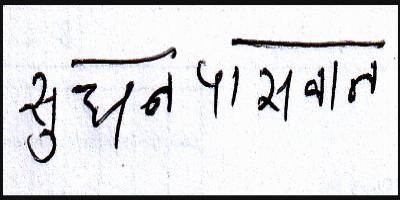 सुधन पासवान